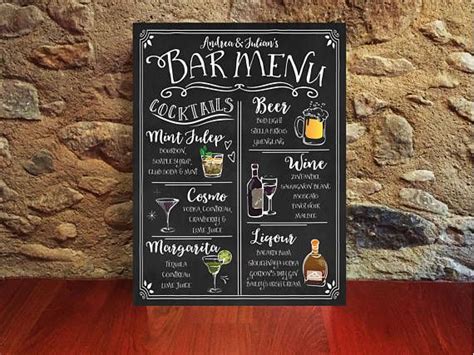 Andrea & Julian's
BAR MENU
COCKTAILS
Mint Julep
BOURBON,
SIMPLE SYRUP,
CLUB SODA & MINT
Cosmo
VODKA, COINTREAU,
CRANBERRY &
LIME JUICE
Margarita
TEQUILA
COINTREAU
LIME JUICE
Beer
BUD LIGHT
STELLA ARTOIS
YUENGLING
Wine
ZINFANDEL
SAUVIGNON BLANC
MOSCATO
PINOT NOIR
MALBEC
Liqour
BACARDI RUM
STOLICHNAYA VODKA
GORDON'S DRY GIN
BAILEY'S IRISH CREAM